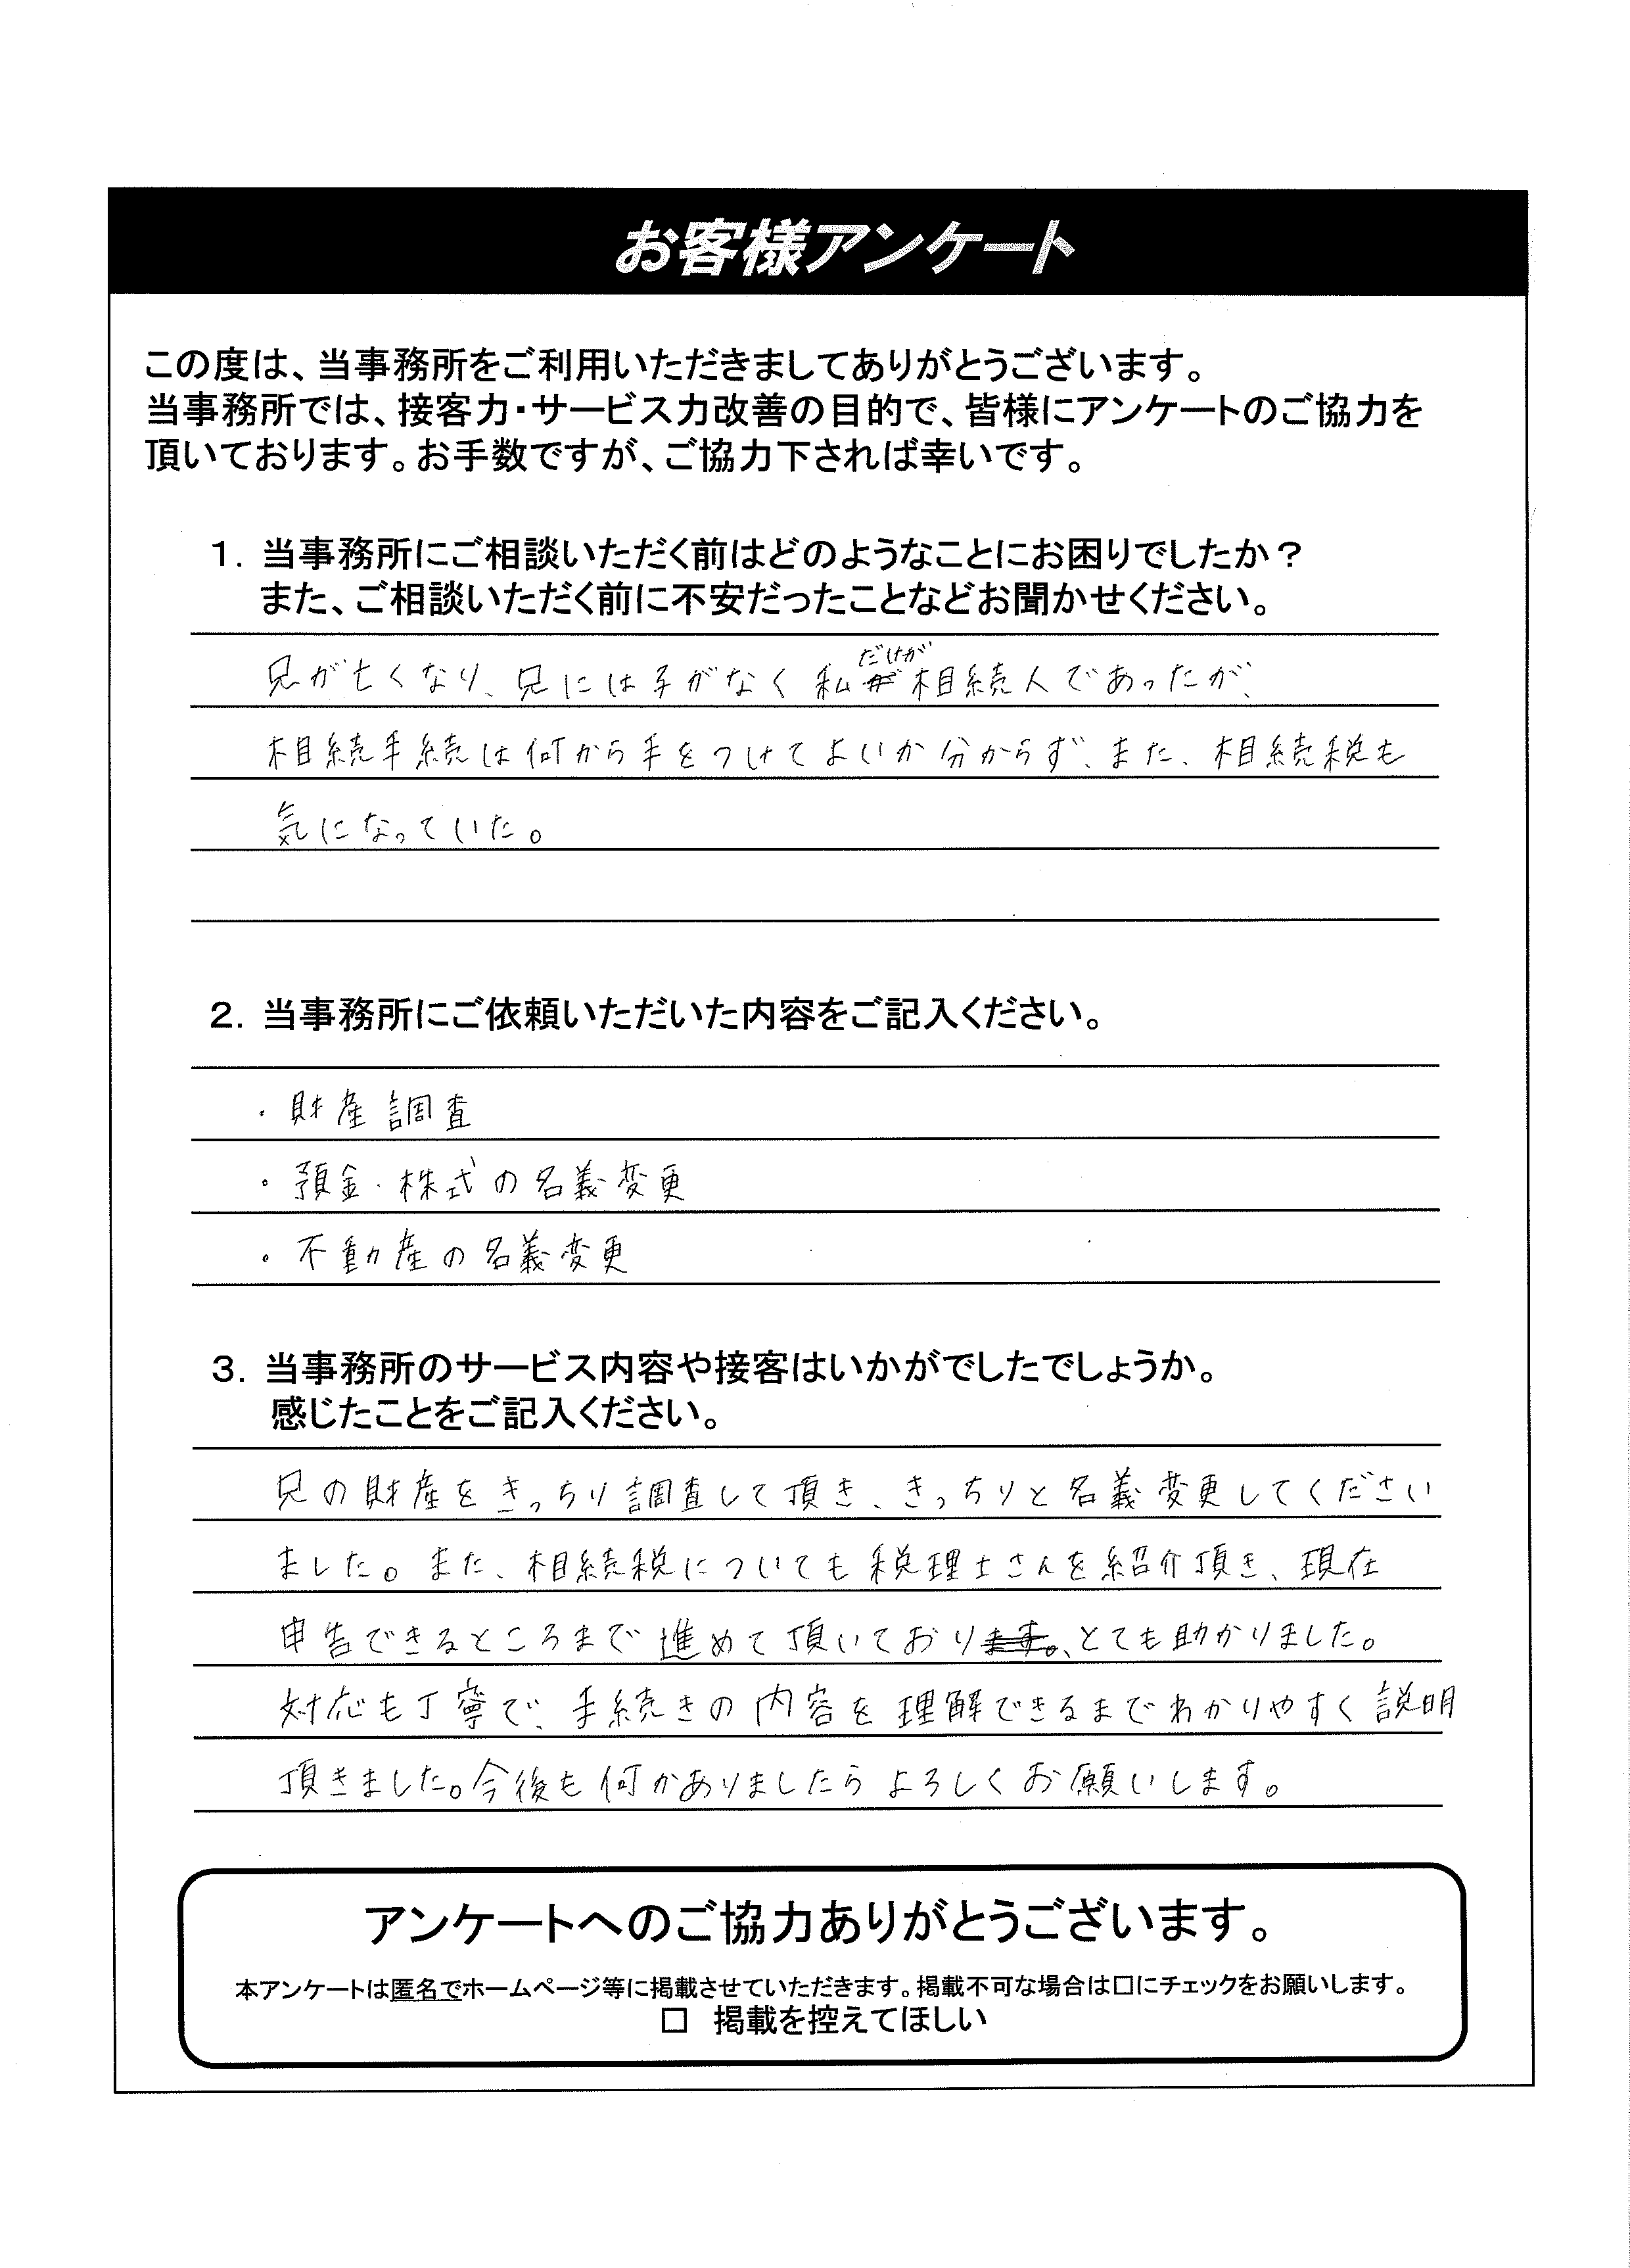 お客様アンケート
この度は、当事務所をご利用いただきましてありがとうございます。
当事務所では、接客力・サービス力改善の目的で、皆様にアンケートのご協力を
頂いております。お手数ですが、ご協力下されば幸いです。
1. 当事務所にご相談いただく前はどのようなことにお困りでしたか？
また、ご相談いただく前に不安だったことなどお聞かせください。
兄が亡くなり、兄には子がなく私だけが相続人であったが、
相続手続は何から手をつけてよいか分からず、また、相続税も
気になっていた。
2. 当事務所にご依頼いただいた内容をご記入ください。
・財産調査
・預金・株式の名義変更
・不動産の名義変更
3. 当事務所のサービス内容や接客はいかがでしたでしょうか。
感じたことをご記入ください。
兄の財産をきっちり調査して頂き、きっちりと名義変更してください
ました。また、相続税についても税理士さんを紹介頂き、現在
申告できるところまで進めて頂いており、とても助かりました。
対応も丁寧で、手続きの内容を理解できるまでわかりやすく説明
頂きました。今後も何かありましたらよろしくお願いします。
アンケートへのご協力ありがとうございます。
本アンケートは匿名でホームページ等に掲載させていただきます。掲載不可な場合は□にチェックをお願いします。
□ 掲載を控えてほしい